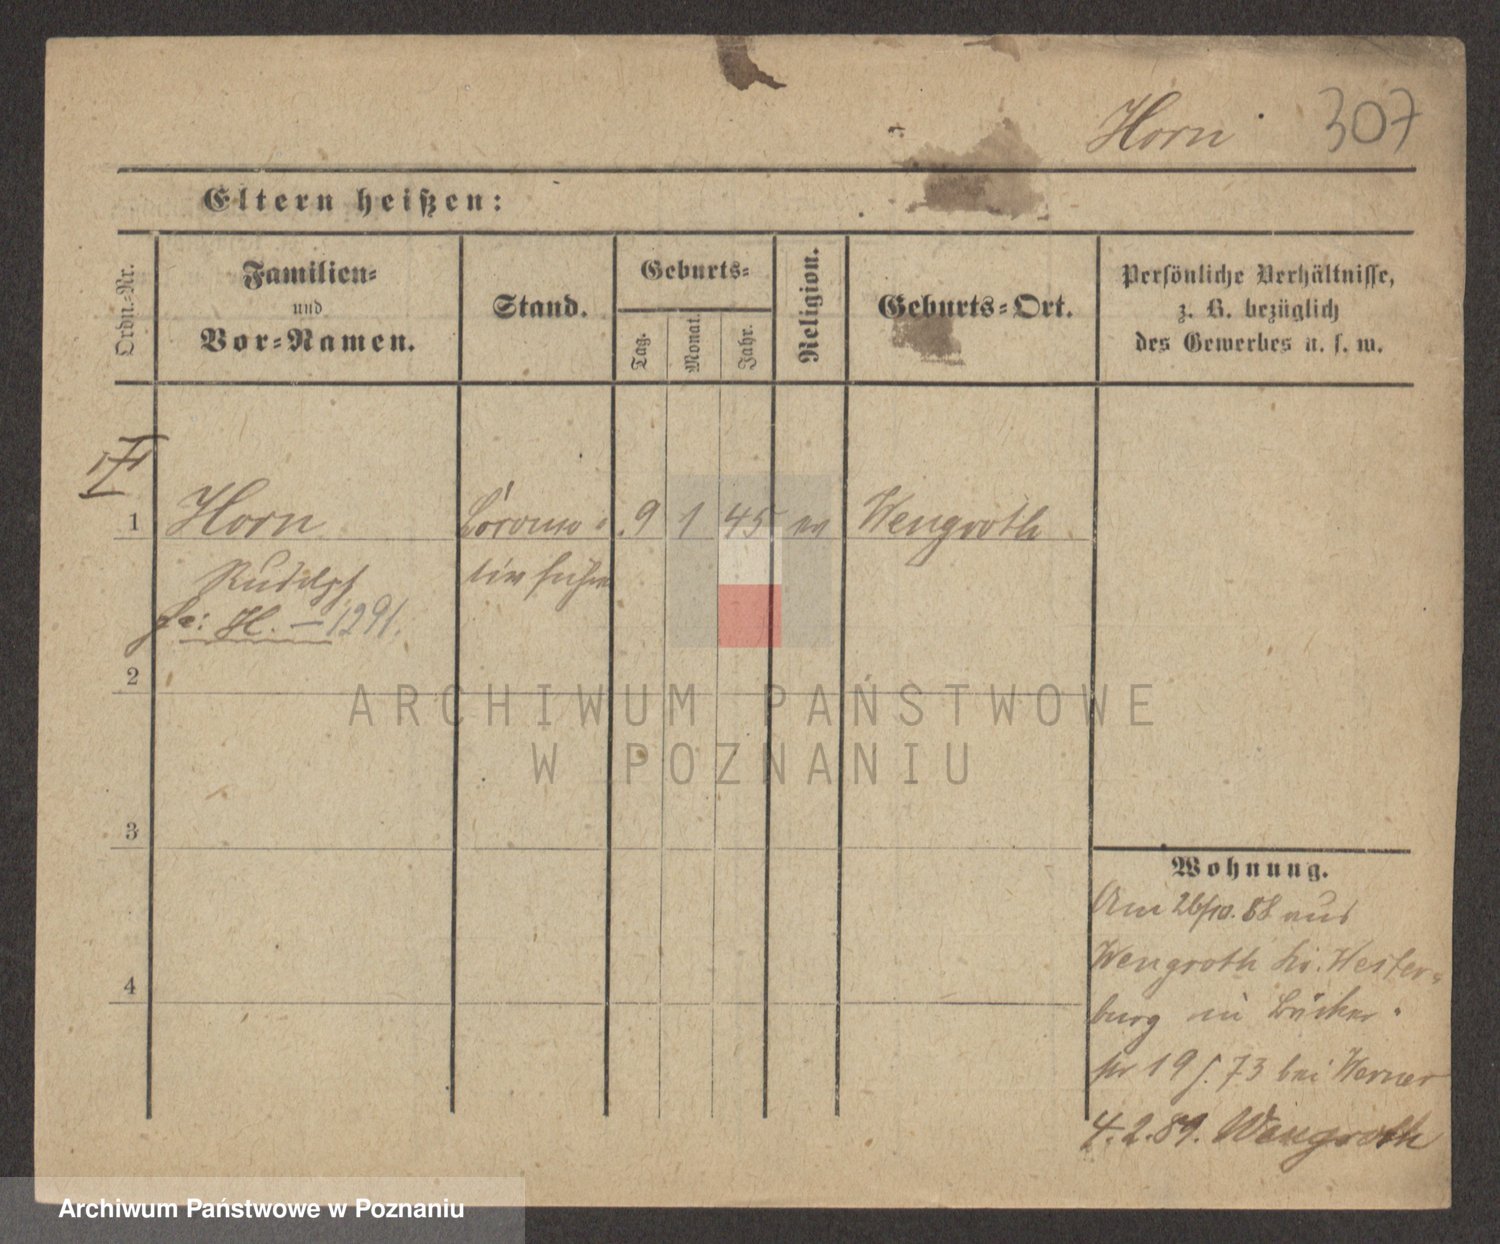 Horn 307
Eltern heißen:
Ordn.-Nr.
Familien-
und
Vor-Namen.
Stand.
Geburts-
Tag.
Monat.
Jahr.
Religion.
Geburts-Ort.
Persönliche Verhältnisse,
z. B. bezüglich
des Gewerbes u. s. w.
1 Horn 9 1 45 ev Wengroth
Rudolph
H. – 1291.
2
3
4
Wohnung.
Am 26/10. 88 aus
Wengroth Kr. Wester-
burg in Bäcker-
str 19 f. 73 bei Werner
4.2.89. Wengroth
ARCHIWUM PAŃSTWOWE
W POZNANIU
Archiwum Państwowe w Poznaniu